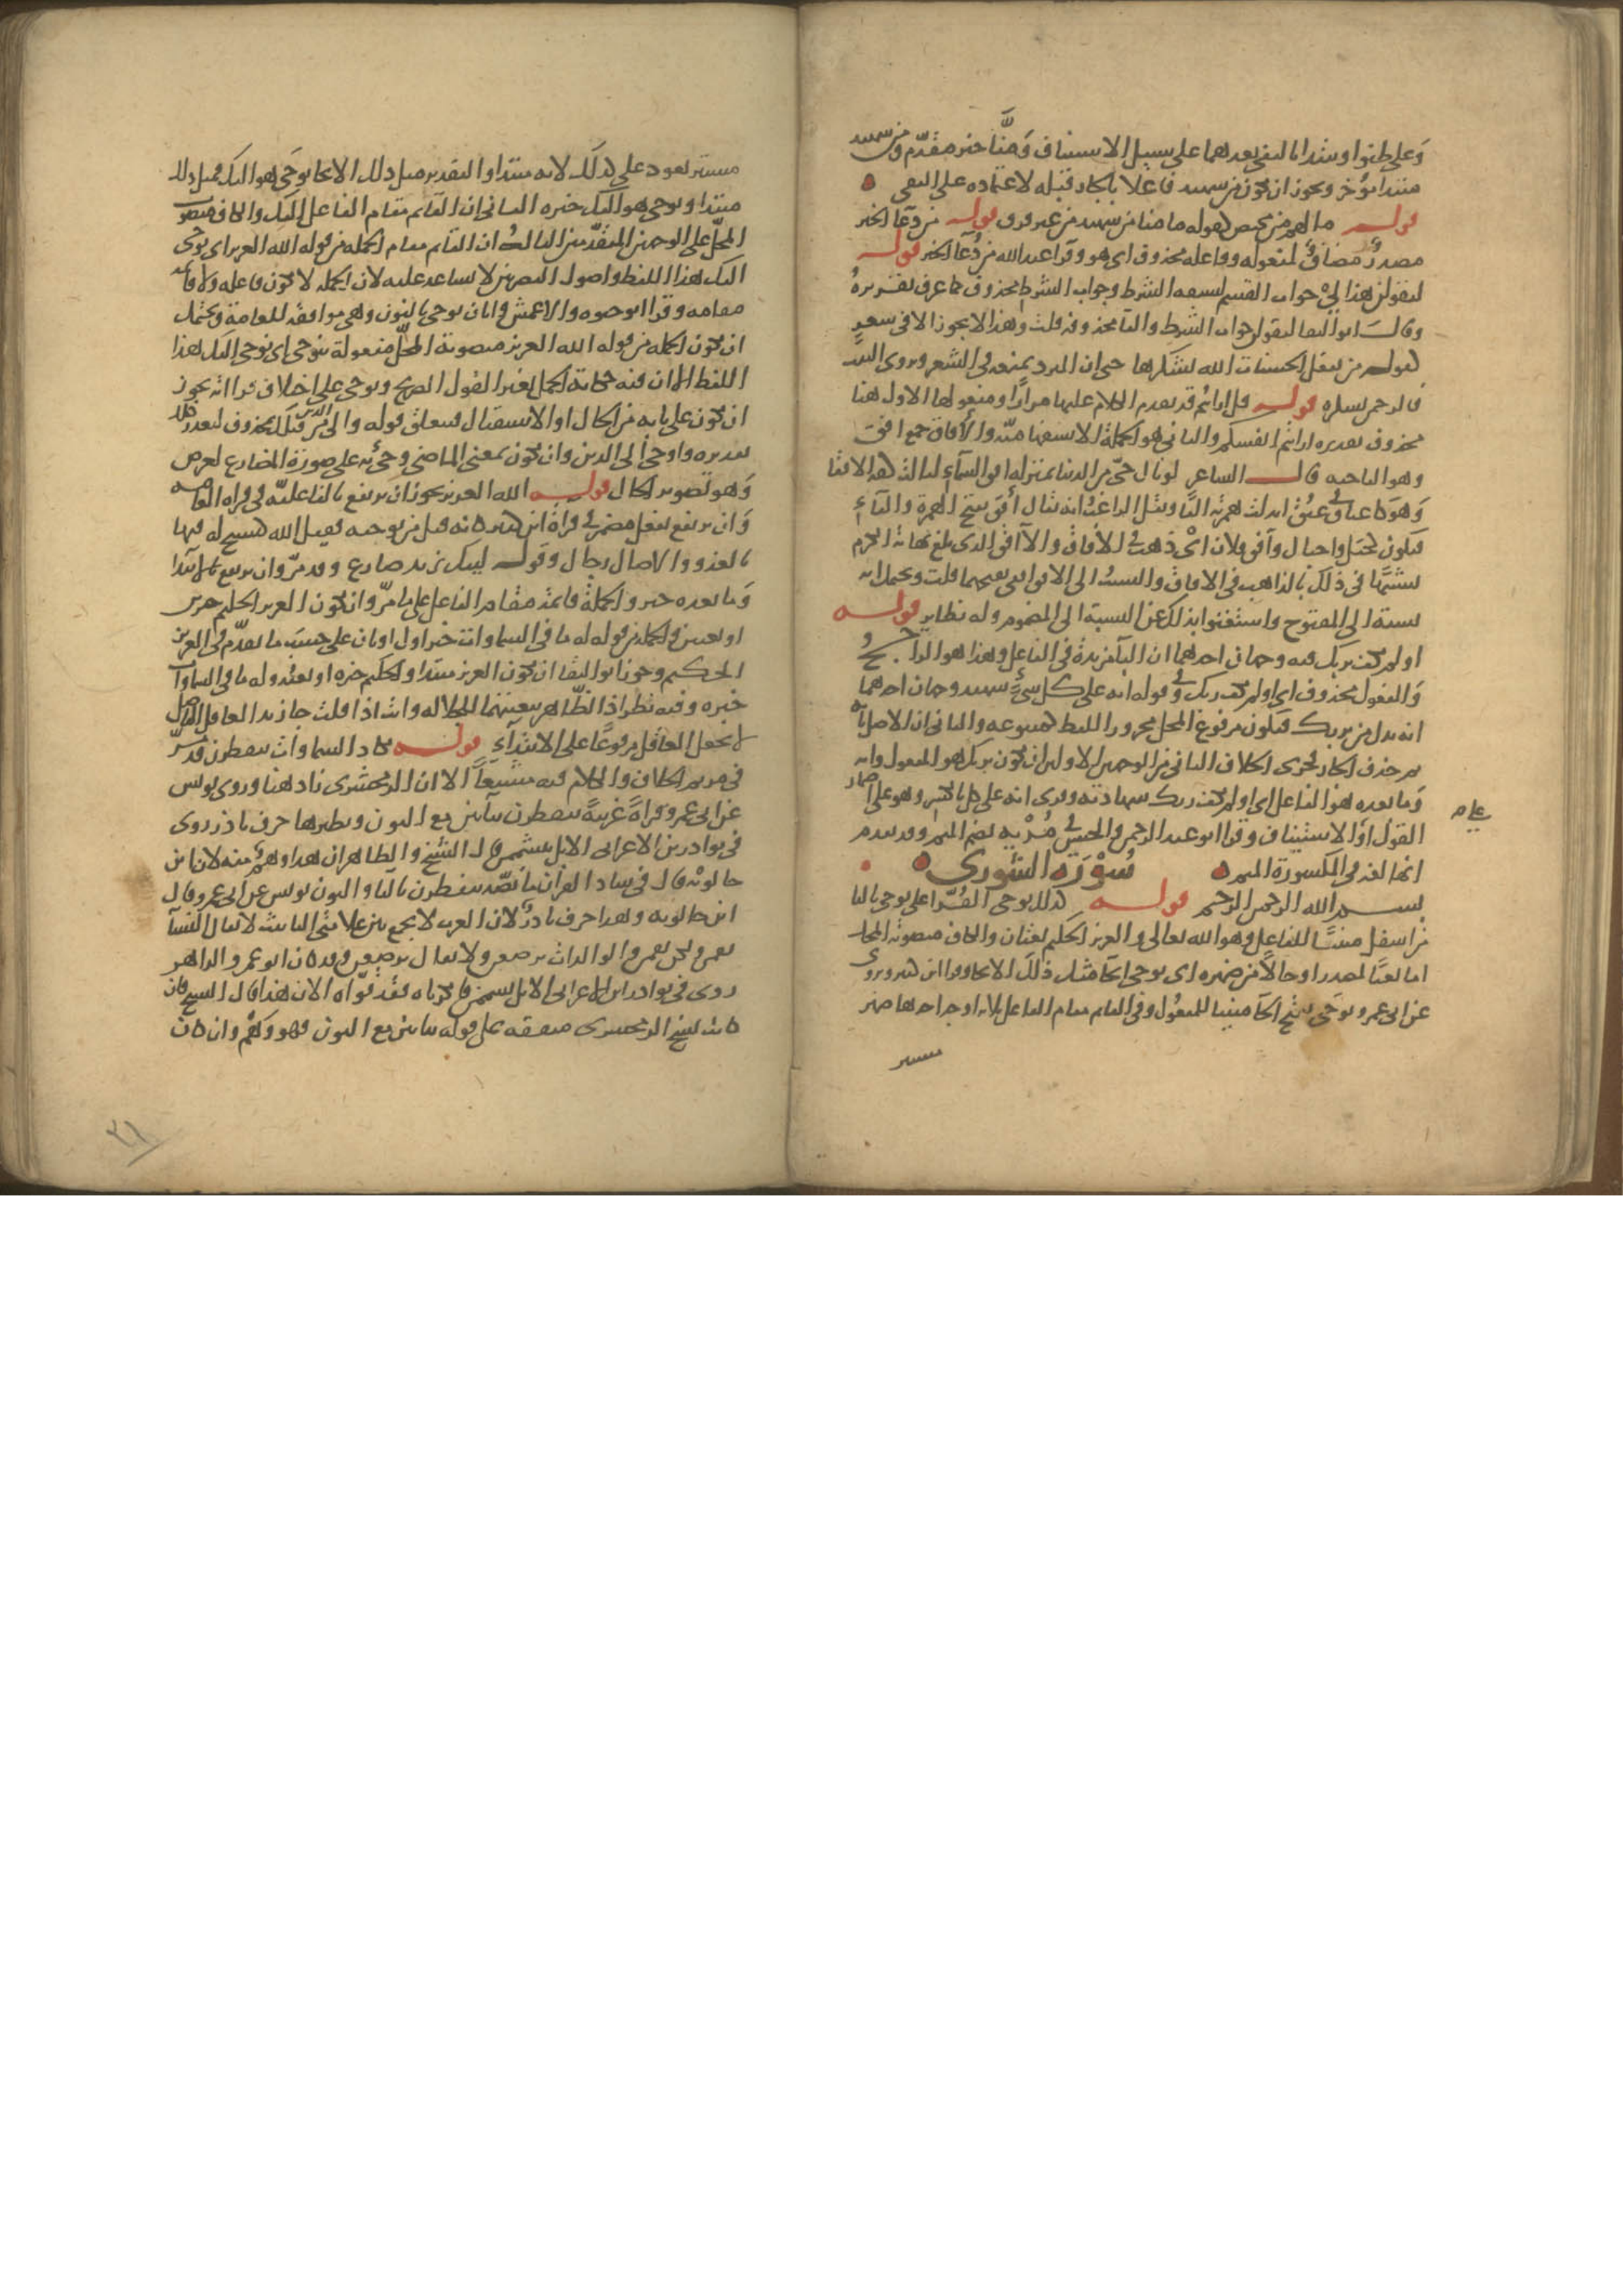 وعلى ظنوا وسدا بالنفي بعدهما على سبيل الاستيناف ومنا خبر مقدم ومن شهيد
مبتدا مؤخر ويجوز ان يكون من شهيد فاعلا بالجار قبله لاعتماده على النفي
قوله ما لهم من محيص كقوله ما منا من شهيد من غير فرق قوله من دعا الخير
مصدر مضاف لمفعوله وفاعله محذوف اي هو وقرا عبد الله من دعا بالخير قوله
ليقولن هذا لي جواب القسم لسبقه الشرط وجواب الشرط محذوف كما عرف تقريره
وقال ابو البقا ليقولن جواب الشرط والفا محذوفة قلت وهذا لا يجوز الا في شعر
كقوله من يفعل الحسنات الله يشكرها حتى ان المبرد يمنعه في الشعر ويروي البيت
فالرحمن يشكره قوله قل ارايتم قد تقدم الكلام عليها مرارا ومفعولها الاول هنا
محذوف تقديره ارايتم انفسكم والثاني هو الجملة الاستفهامية والآفاق جمع افق
وهو الناحية قال الشاعر لو نال حي من الدنيا بمنزلة افق السماء لنالت كفه الافقا
وهو كاعناق في عنق ابدلت همزته الفا ونقل الراغب انه يقال أفق بفتح الهمزة والفاء
فيكون كجبل واجبال وآفق فلان اي ذهب في الآفاق والآفق الذي بلغ نهاية الكرم
تشبيها في ذلك بالذاهب في الافاق والنسب الى الافق افقي بفتحهما قلت ويحتمل انه
نسبة الى المفتوح واستغنوا بذلك عن النسبة الى المضموم وله نظاير قوله
اولم يكف بربك فيه وجهان احدهما ان الباء مزيدة في الفاعل وهذا هو الراجح
والمفعول محذوف اي اولم يكفك ربك وفي قوله انه على كل شيء شهيد وجهان احدهما
انه بدل من بربك فيكون مرفوع المحل مجرور اللفظ كمتبوعه والثاني ان الاصل بانه
ثم حذف الجار فجرى الخلاف الثاني من الوجهين الاولين ان يكون بربك هو المفعول وانه
وما بعده هو الفاعل اي اولم يكف ربك شهادته وقرئ انه على كل بالكسر وهو على اضمار
القول او الاستيناف وقرا ابو عبد الرحمن والحسن في مرية بضم الميم وقد تقدم
انها لغة في المكسورة الميم سورة الشورى
بسم الله الرحمن الرحيم قوله كذلك يوحى القراء على يوحي باليا
من اسفل مبنيا للفاعل وهو الله تعالى والعزيز الحكيم نعتان والكاف منصوبة المحل
اما نعتا لمصدر او حالا من ضميره اي يوحي ايحا مثل ذلك الايحا وقرا ابن كثير ويروى
عن ابي عمرو يوحى بفتح الحا مبنيا للمفعول وفي القايم مقام الفاعل ثلاثة اوجه احدها ضمير
مستتر
مستتر يعود على كذلك لانه مبتدا والتقدير مثل ذلك الايحا يوحى هو اليك فمثل ذلك
مبتدا ويوحى هو اليك خبره الثاني ان القايم مقام الفاعل اليك والكاف منصوب
المحل على الوجهين المتقدمين الثالث ان القايم مقام الجملة من قوله الله العزيز اي يوحى
اليك هذا اللفظ واصول البصريين لا تساعد عليه لان الجملة لا تكون فاعلة ولا قايمة
مقامه وقرا ابو حيوة والاعمش وابان نوحي بالنون وهي موافقة للعامة ويحتمل
ان تكون الجملة من قوله الله العزيز منصوبة المحل مفعولة بنوحي اي نوحي اليك هذا
اللفظ الا ان فيه حكاية الجمل بغير القول الصريح ونوحي على اختلاف قراءاته يجوز
ان يكون على بابه من الحال او الاستقبال فيتعلق قوله والى الذين من قبلك بمحذوف لتعذر ذلك
تقديره واوحى الى الذين وان يكون بمعنى الماضي وجيء به على صورة المضارع لغرض
وهو تصوير الحال قوله الله العزيز يجوز ان يرتفع بالفاعلية في قراة العامة
وان يرتفع بفعل مضمر في قراة ابن كثير كانه قيل من يوحيه فقيل الله كيسبح له فيها
بالغدو والاصال رجال وقوله ليبك يزيد ضارع وقد مر وان يرتفع بالابتدا
وما بعده خبر والجملة قايمة مقام الفاعل على ما مر وان يكون العزيز الحكيم خبرين
او نعتين والجملة من قوله له ما في السماوات خبر اول او ثان على حسب ما تقدم في العزيز
الحكيم وجوز ابو البقا ان يكون العزيز مبتدا والحكيم خبره او نعته وله ما في السماوات
خبره وفيه نظر اذ الظاهر تبعيتهما للجلالة وانت اذا قلت جا زيد العاقل الفاضل
لا تجعل العاقل مرفوعا على الابتداء قوله تكاد السماوات يتفطرن قد مر
في مريم الخلاف والكلام فيه مشبعا الا ان الزمخشري زاد هنا وروى يونس
عن ابي عمرو قراة غريبة تتفطرن بتاين مع النون ونظيرها حرف نادر روي
في نوادر ابن الاعرابي الابل تتشممن قال الشيخ والظاهر ان هذا وهم منه لان ابن
خالويه قال في شاذ القران ما نصه تنفطرن بالتا والنون يونس عن ابي عمرو قال
ابن خالويه وهذا حرف نادر لان العرب لا تجمع بين علامتي التانيث لا يقال النسا
تقمن ولكن يقمن والوالدات يرضعن ولا يقال ترضعن وقد كان ابو عمر والزاهد
روى في نوادر ابن الاعرابي الابل تسمن فانكرناه فقد قواه الان هذا قال الشيخ فان
كانت نسخ الزمخشري متفقة على قوله بتاين مع النون فهو وهم وان كان